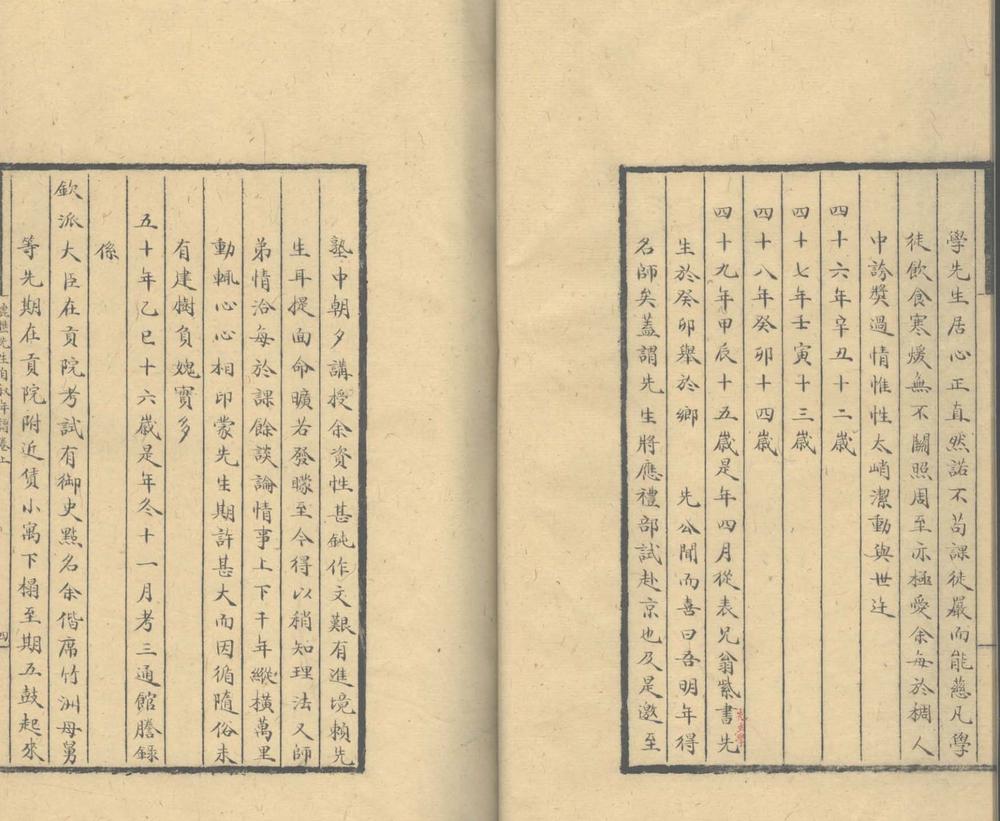 學先生居心正直然諾不苟課徒嚴而能慈凡學
徒飲食寒煖無不關照周至亦極愛余每於稠人
中誇獎過情惟性太峭潔動與世迕
四十六年辛丑十二歲
四十七年壬寅十三歲
四十八年癸卯十四歲
四十九年甲辰十五歲是年四月從表兄翁紫書先
生於癸卯舉於鄉　先公聞而喜曰吾明年得
名師矣蓋謂先生將應禮部試赴京也及是邀至
塾中朝夕講授余資性甚鈍作文艱有進境賴先
生耳提面命曠若發矇至今得以稍知理法又師
弟情洽每於課餘談論情事上下千年縱橫萬里
動輒心心相印蒙先生期許甚大而因循隨俗未
有建樹負媿實多
五十年乙巳十六歲是年冬十一月考三通館謄錄
係
欽派大臣在貢院考試有御史點名余偕席竹洲母舅
等先期在貢院附近賃小寓下榻至期五鼓起來
先生自叙年譜卷上
四